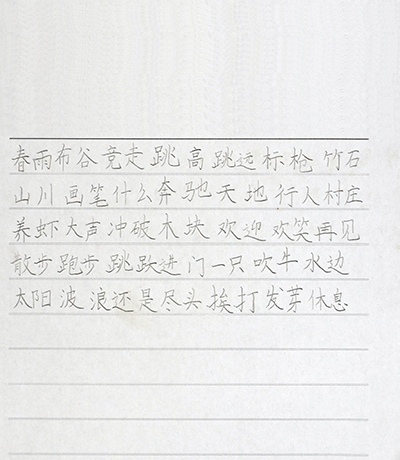 春雨布谷竞走跳高跳远标枪竹石
山川画笔什么奔驰天地行人村庄
养虾大声冲破木块欢迎欢笑再见
散步跑步跳跃进门一只吹牛水边
太阳波浪还是尽头挨打发芽休息